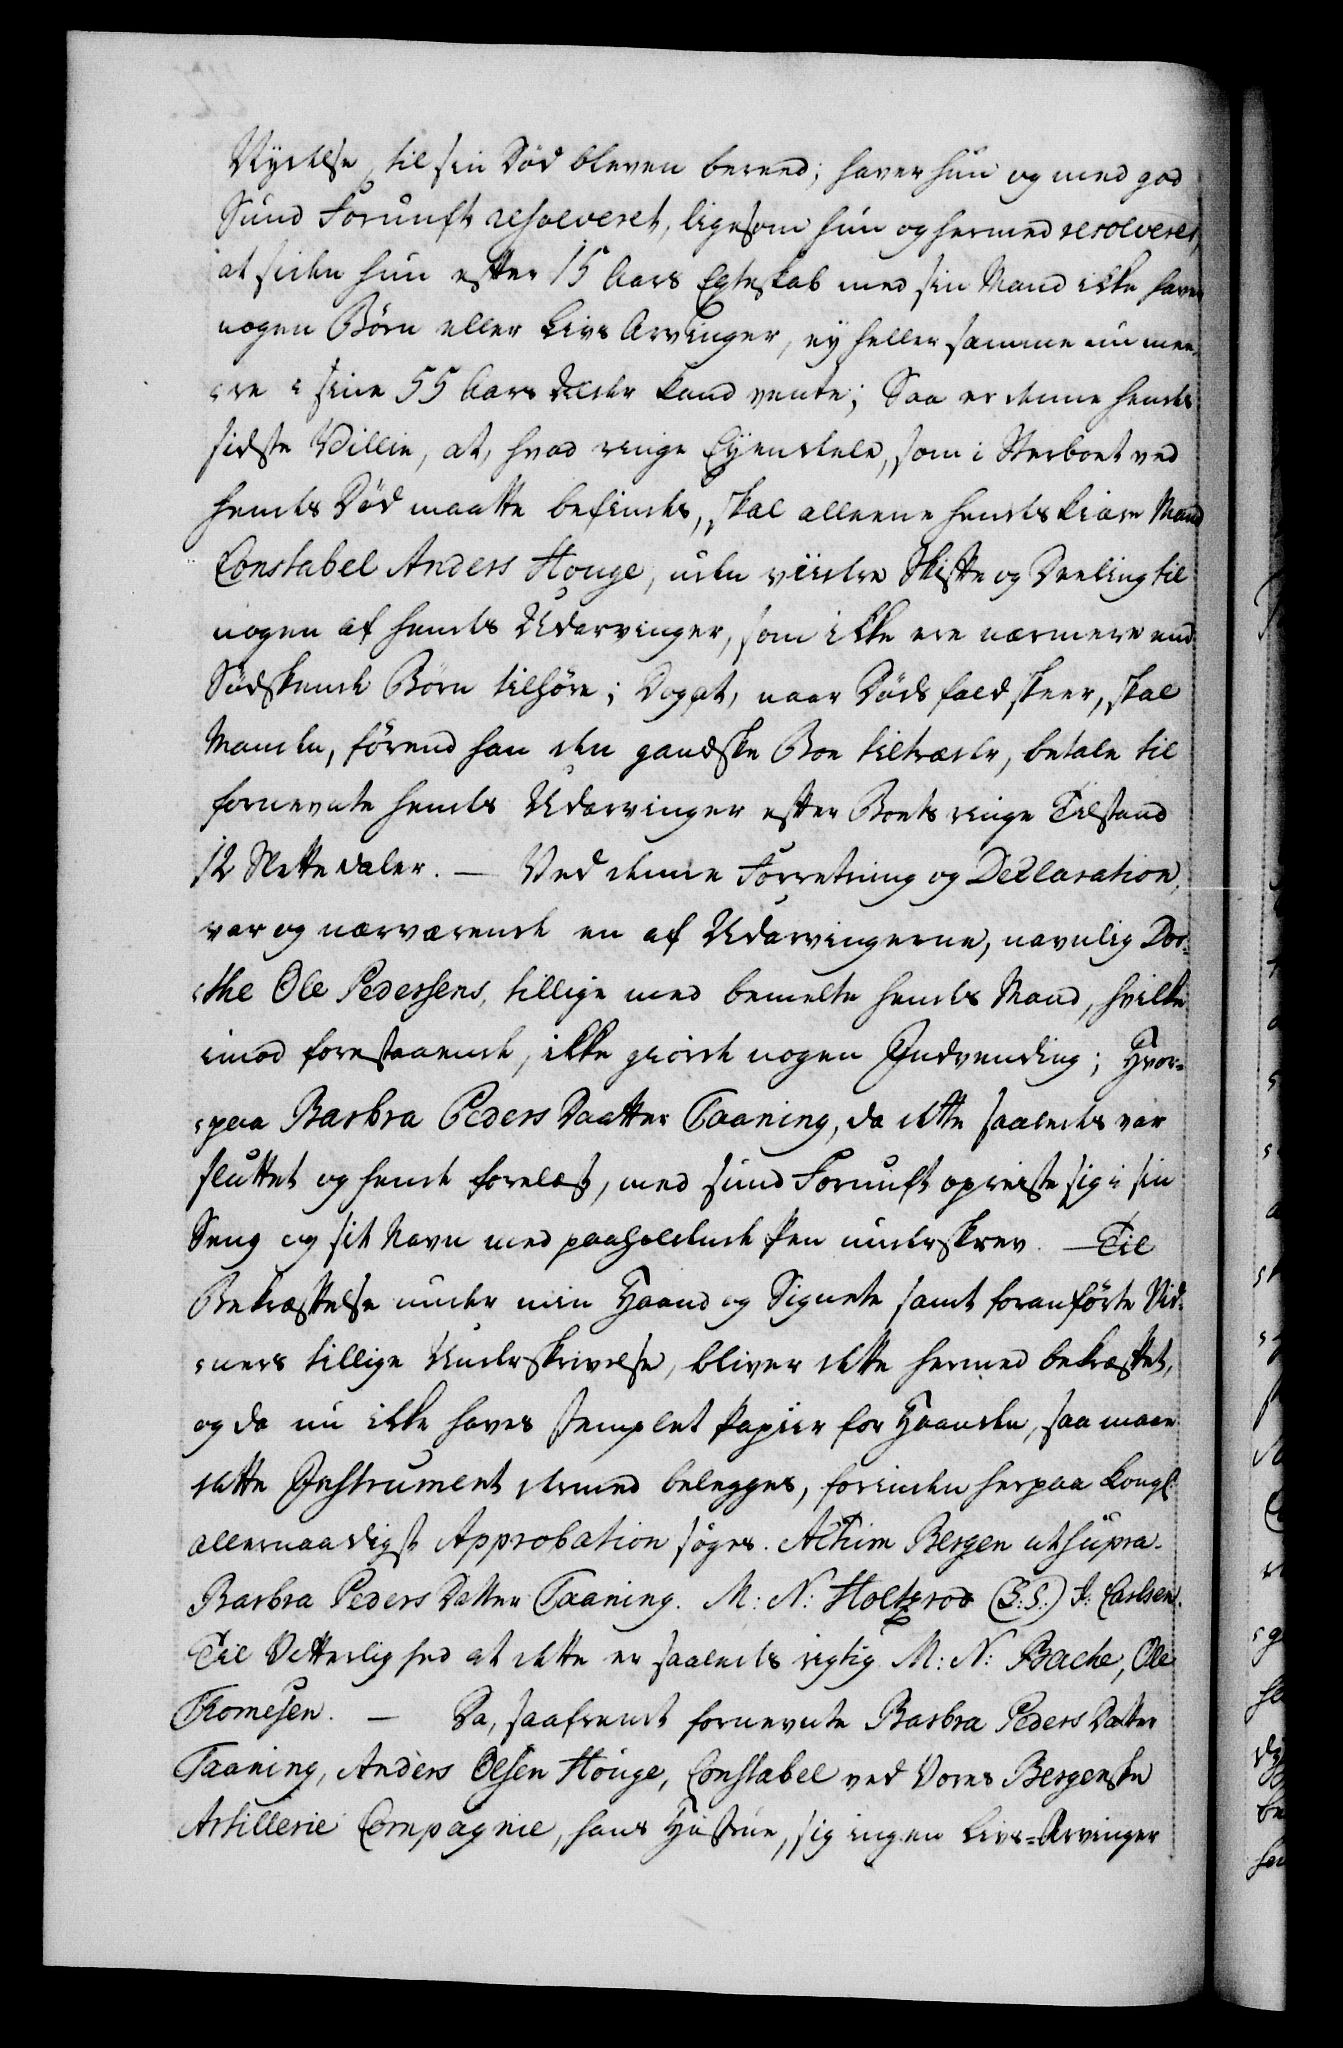 Nydelse, til sin Död bleven bered; haver hun og med god
Sund Fornuft resolveret, ligesom hun og hermed resolverer,
at siden hun efter 15 Aars Egteskab med sin Mand ikke haver
nogen Börn eller Livs Arvinger, ey heller samme nu mee-
-re i sine 55 Aars Alder kand vente; Saa er denne hendes
sidste Villie, at, hvad ringe Eyendele, som i Sterboet ved
hendes Död maatte befindes, skal alleene hendes kiære Mand
Constabel Anders Houge, uden viidre Skifte og Deeling til
nogen af hendes Udarvinger, som ikke ere nærmere end
Södskende Börn tilhöre; Dog at, naar Dödsfald skeer, skal
Manden, förend han den gandske Boe tiltræder, betale til
fornevnte hendes Udarvinger efter Boets ringe Tilstand
12 Slettedaler. — Ved denne Forretning og Declaration,
var og nærværende en af Udarvingerne, navnlig Dor-
-the Ole Pedersens, tillige med bemelte hendes Mand, hvilke
imod forestaaende, ikke giorde nogen Indvending; Hvor-
-paa Barbra Peders Daatter Taaning, da dette saaledes var
sluttet og hende forelæst, med sund Fornuft opreiste sig i sin
Seng og sit Navn med paaholdende Pen underskrev. — Til
Bekræftelse under min Haand og Signete samt foranförte Vid-
-ners tillige Underskrivelse, bliver dette hermed bekræftet,
og da nu ikke haves stemplet Papiir for Haanden, saa maae
dette Instrument dermed belegges, forinden herpaa Kongl:
allernaadigst Approbation söges. Actum Bergen ut supra.
Barbra Peders Datter Taaning. M: N: Holtzrod (L:S:) J: Carlsen.
Til Vitterlighed at dette er saaledes rigtig M: N: Bache, Ole
Thomesen. — Da, saafremt fornevnte Barbra Peders Datter
Taaning, Anders Olsen Houge, Constabel ved Vores Bergenske
Artillerie Compagnie, hans Hustrue, sig ingen Livs-Arvinger